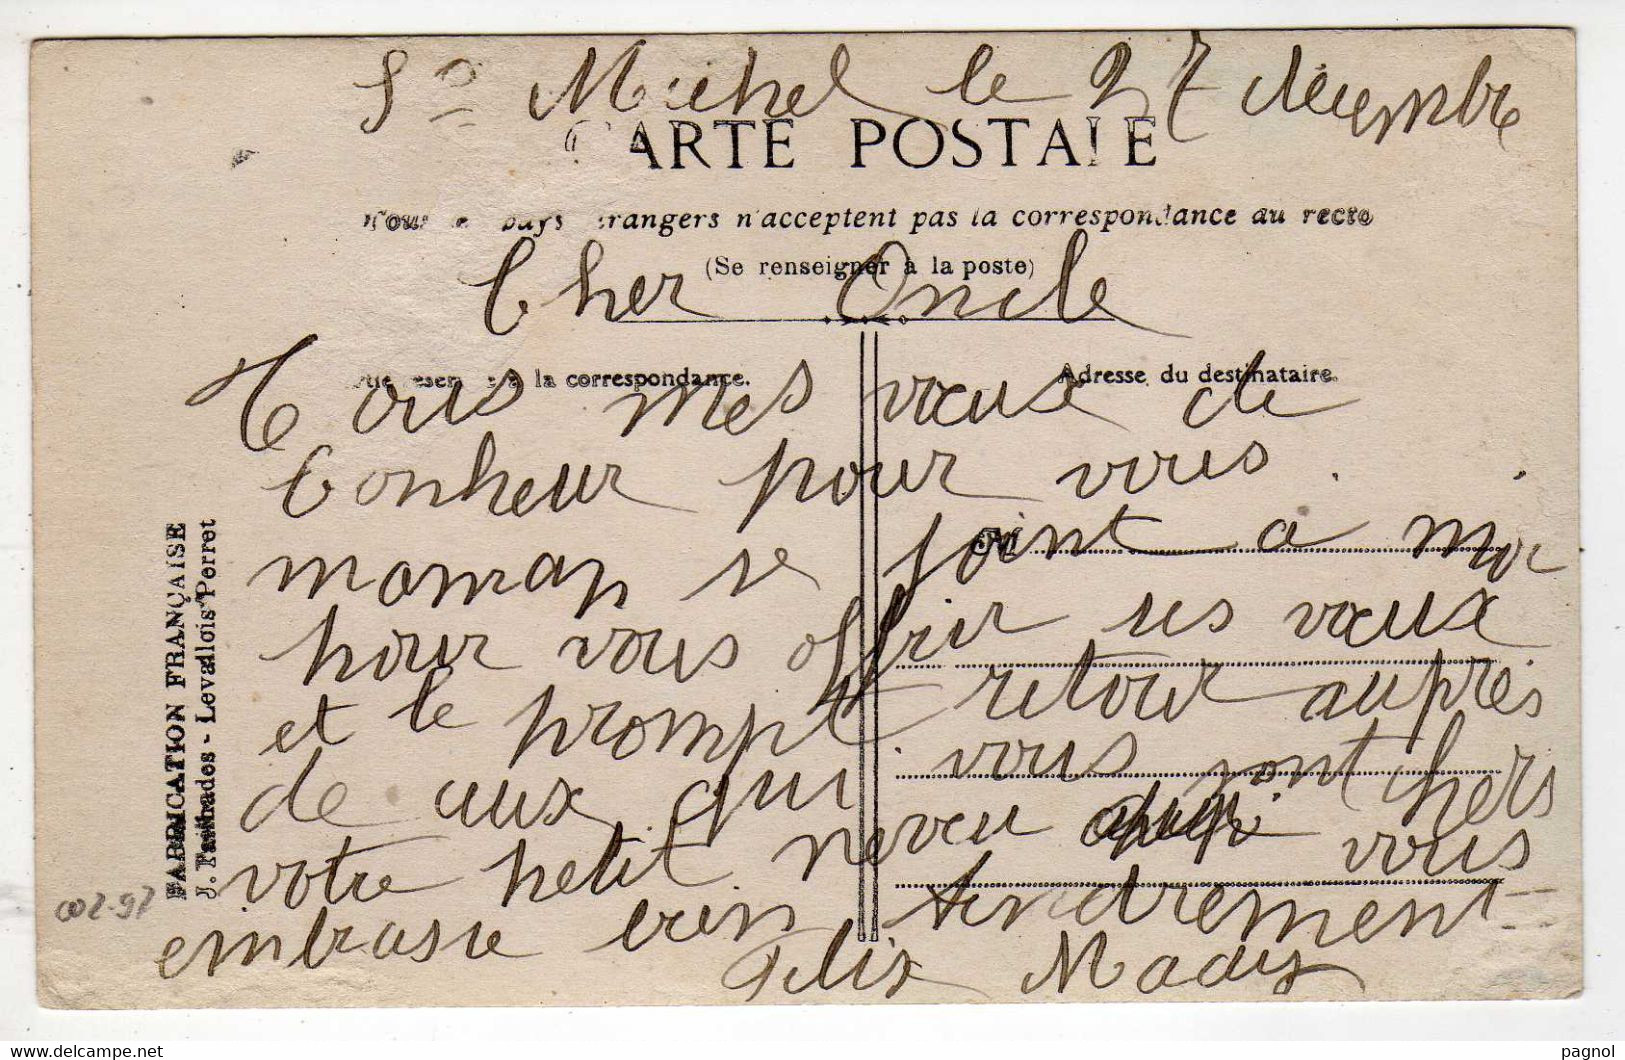 St Michel le 27 décembre
CARTE POSTALE
Tous les pays étrangers n'acceptent pas la correspondance au recto
(Se renseigner à la poste)
Cher Oncle
la correspondance.
Adresse du destinataire.
Tous mes vœux de
bonheur pour vous.
maman se joint a moi
M
pour vous offrir ses vœux
et le prompt retour auprès
de aux qui vous sont chers
votre petit neveu qui vous
embrasse bien tendrement
Felix
FABRICATION FRANÇAISE
J. - Levallois-Perret
002-97
www.delcampe.net
pagnol